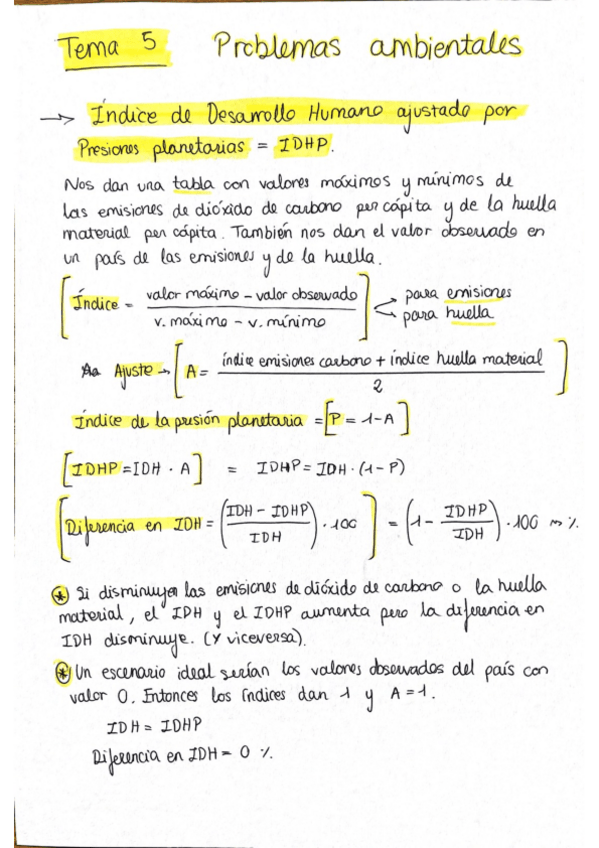 Tema 5 Problemas ambientales
→ Índice de Desarrollo Humano ajustado por
Presiones planetarias = IDHP.
Nos dan una tabla con valores máximos y mínimos de
las emisiones de dióxido de carbono per cápita y de la huella
material per cápita. También nos dan el valor observado en
un país de las emisiones y de la huella.
[Índice = (valor máximo - valor observado) / (v. máximo - v. mínimo)] para emisiones
para huella
Ajuste → [A = (índice emisiones carbono + índice huella material) / 2]
Índice de la presión planetaria = [P = 1-A]
[IDHP = IDH · A] = IDHP = IDH · (1-P)
[Diferencia en IDH = ((IDH - IDHP) / IDH) · 100] = (1 - IDHP / IDH) · 100 ⇝ %
* Si disminuyen las emisiones de dióxido de carbono o la huella
material, el IDH y el IDHP aumenta pero la diferencia en
IDH disminuye. (Y viceversa).
* Un escenario ideal serían los valores observados del país con
valor 0. Entonces los índices dan 1 y A=1.
IDH = IDHP
Diferencia en IDH = 0 %